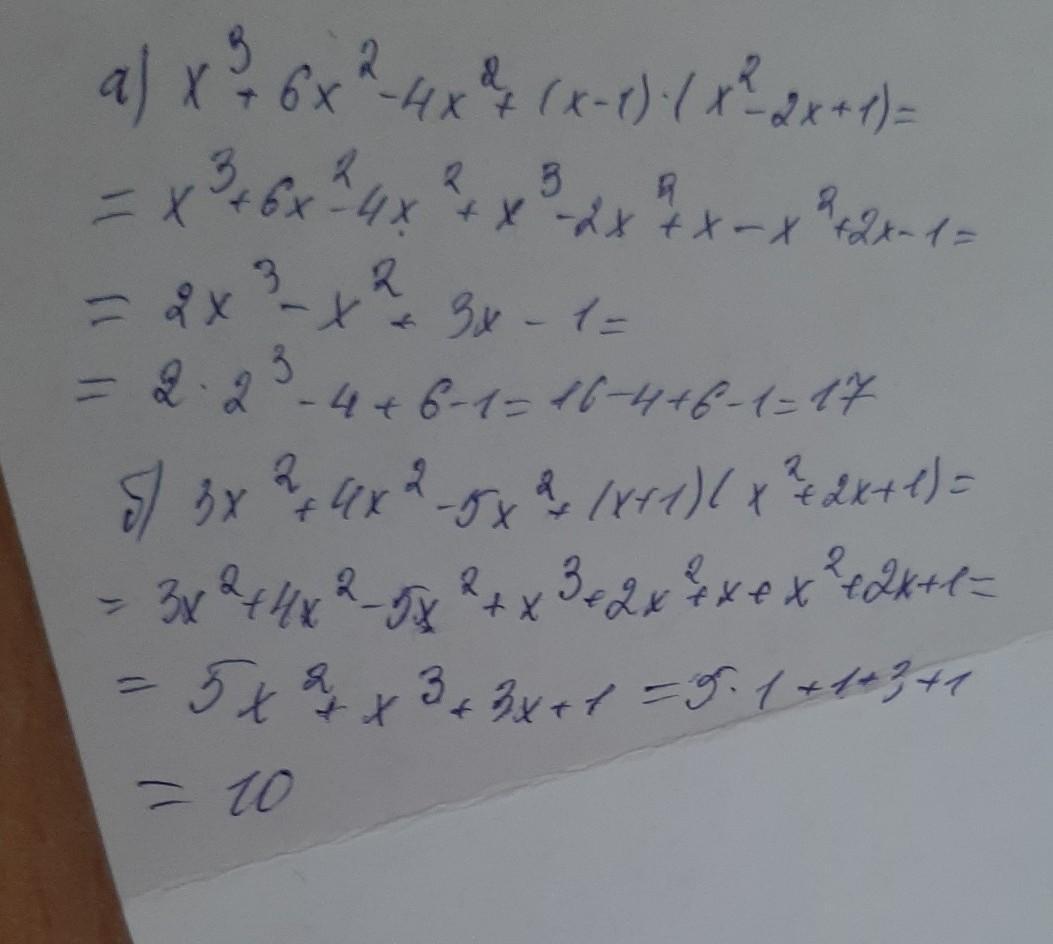 а) x³ + 6x² - 4x² + (x-1)·(x² - 2x + 1) =
= x³ + 6x² - 4x² + x³ - 2x² + x - x² + 2x - 1 =
= 2x³ - x² + 3x - 1 =
= 2·2³ - 4 + 6 - 1 = 16 - 4 + 6 - 1 = 17
б) 3x² + 4x² - 5x² + (x+1)(x² + 2x + 1) =
= 3x² + 4x² - 5x² + x³ + 2x² + x + x² + 2x + 1 =
= 5x² + x³ + 3x + 1 = 5·1 + 1 + 3 + 1
= 10